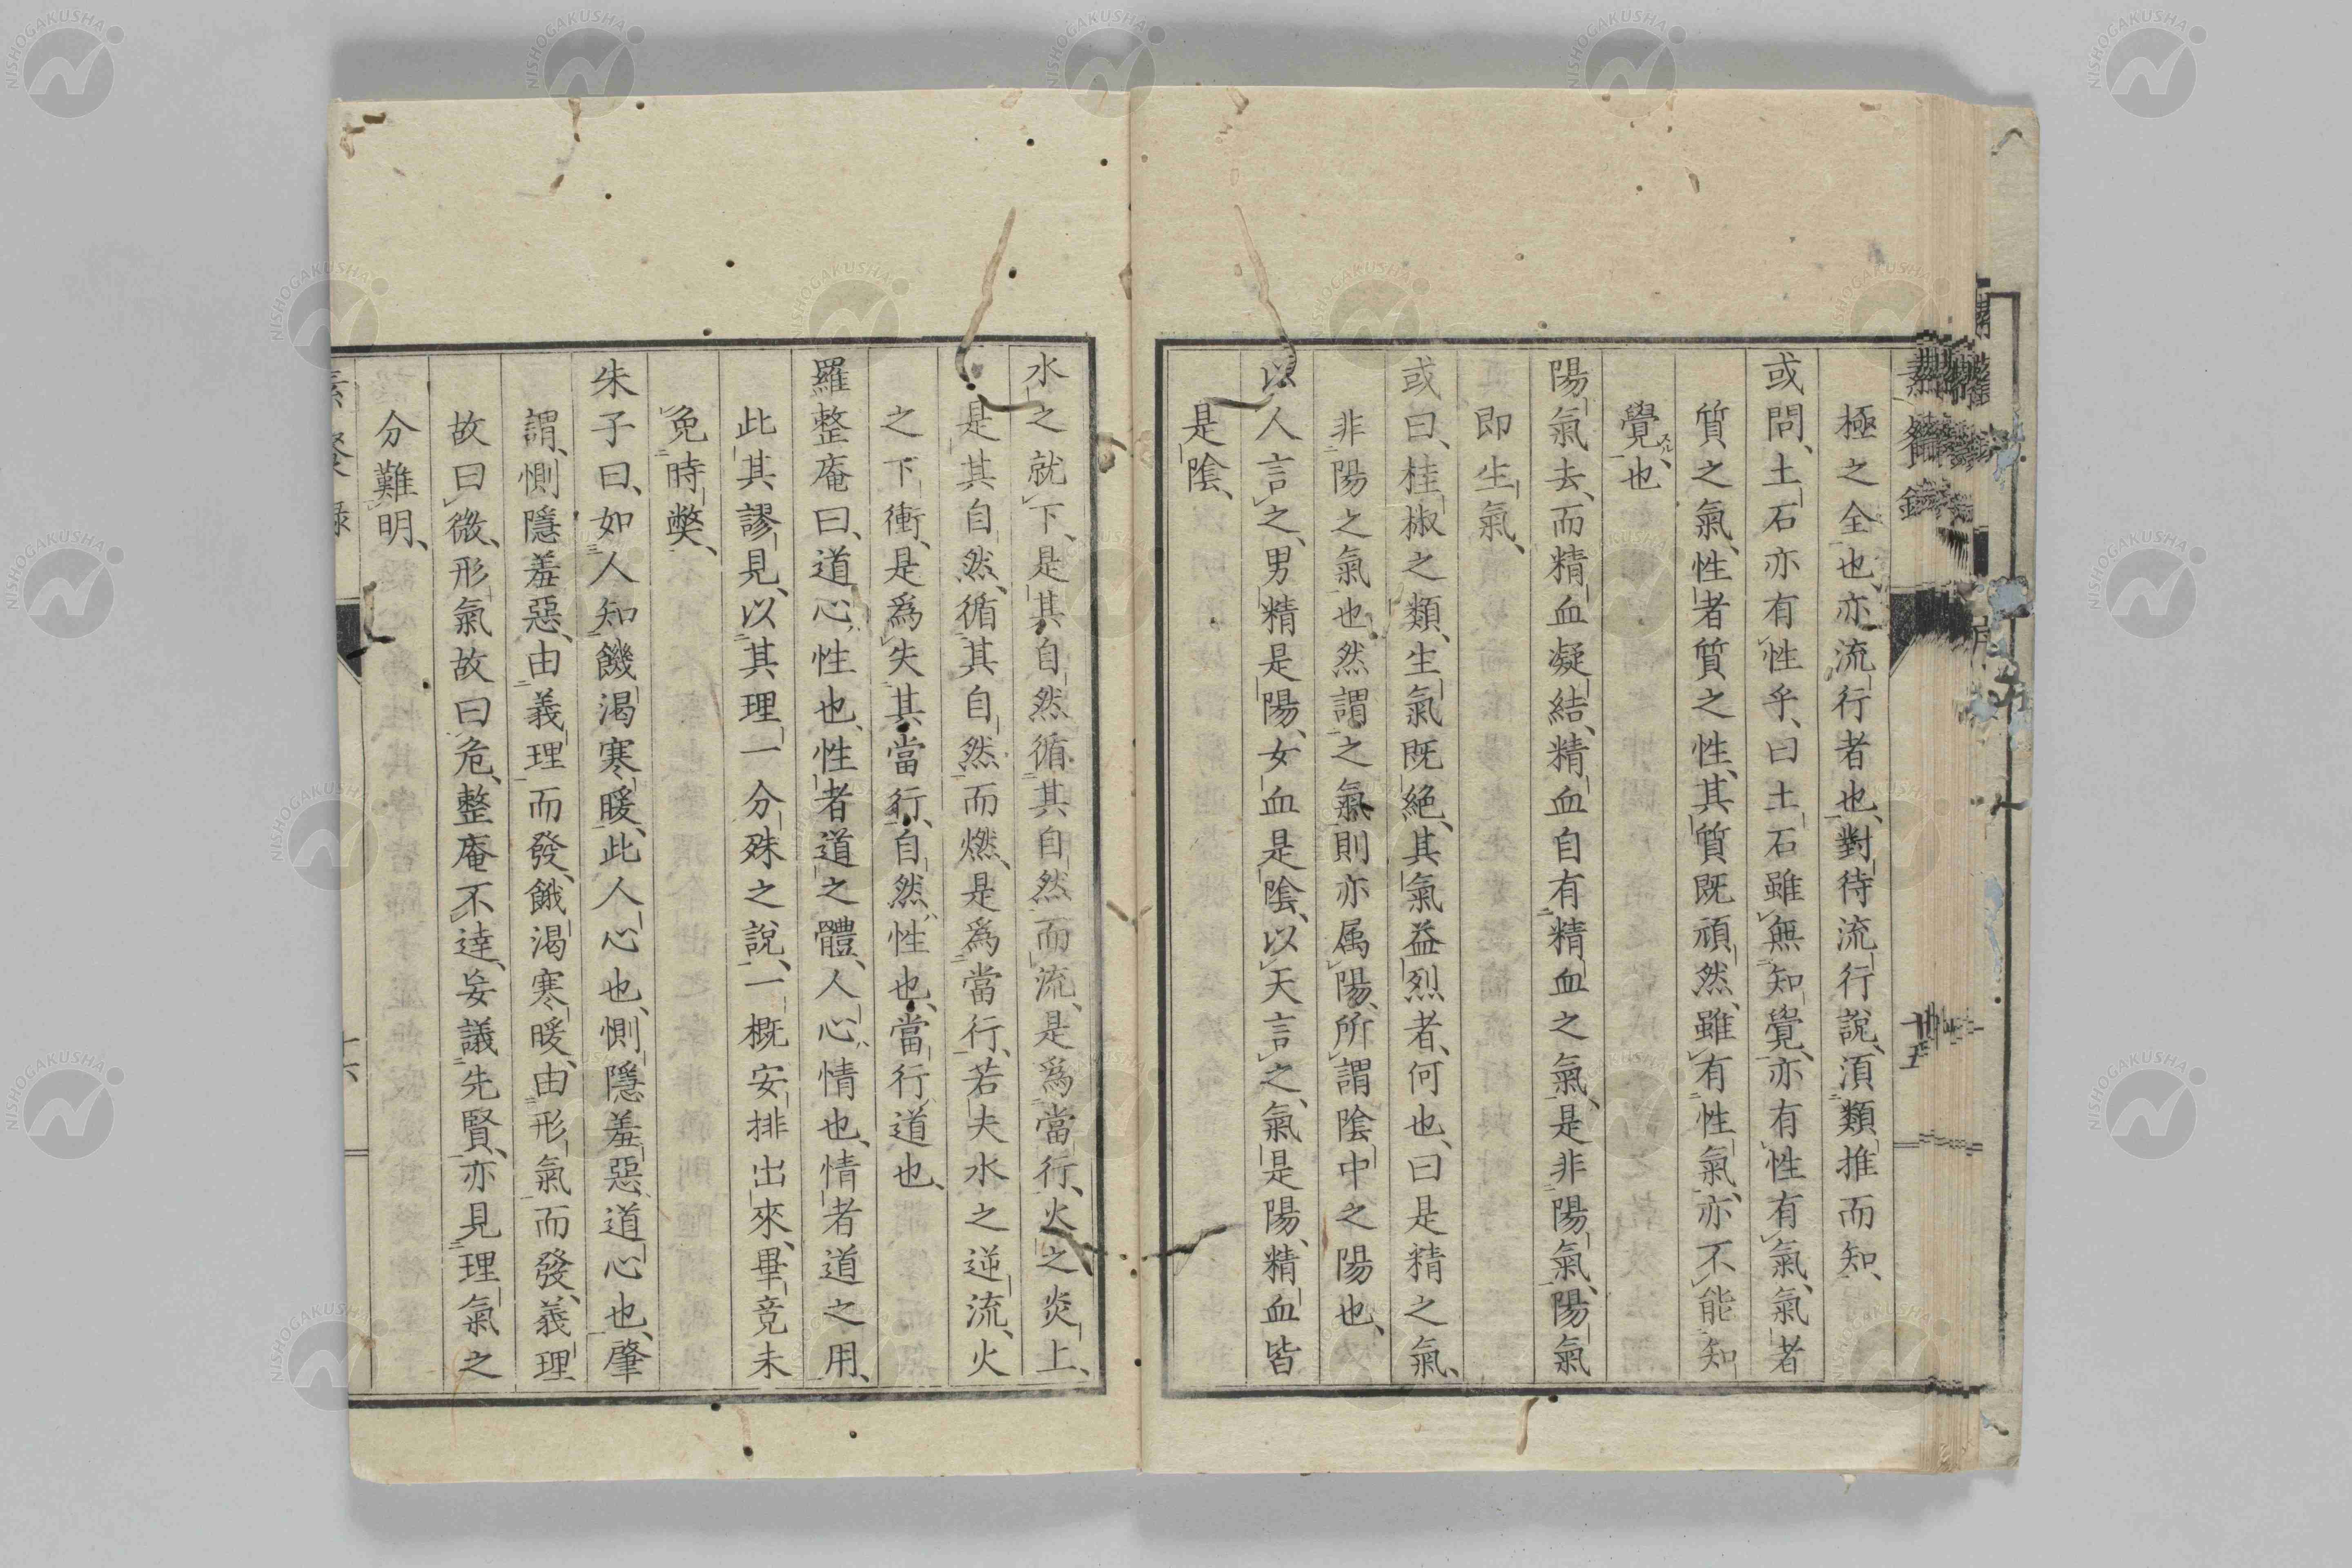 極之全也、亦流行者也、對待流行説、湏類推而知、
或問、土石亦有性乎、曰土石雖無知覺、亦有性有氣、氣者
質之氣、性者質之性、其質既頑然、雖有性氣、亦不能知
覺スル、也
陽氣去、而精血凝結、精血自有精血之氣、是非陽氣、陽氣
即生氣、
或曰、桂椒之類、生氣既絶、其氣益烈者、何也、曰是精之氣、
非陽之氣也然謂之氣則亦属陽、所謂陰中之陽也、
以人言之、男精是陽、女血是陰、以天言之、氣是陽、精血皆
是陰、
水之就下、是其自然循其自然而流、是爲當行、火之炎上、
是其自然、循其自然而燃、是爲當行、若夫水之逆流、火
之下衝、是爲失其當行、自然性也、當行道也、
羅整庵曰、道心性也、性者道之體、人心情也、情者道之用、
此其謬見、以其理一分殊之説、一概安排出來、畢竟未
免時獘、
朱子曰、如人知饑渇寒暖、此人心也、惻隱羞惡、道心也、肇
謂、惻隱羞惡、由義理而發、餓渇寒暖、由形氣而發、義理
故曰微、形氣故曰危、整庵不達、妄議先賢、亦見理氣之
分難明、